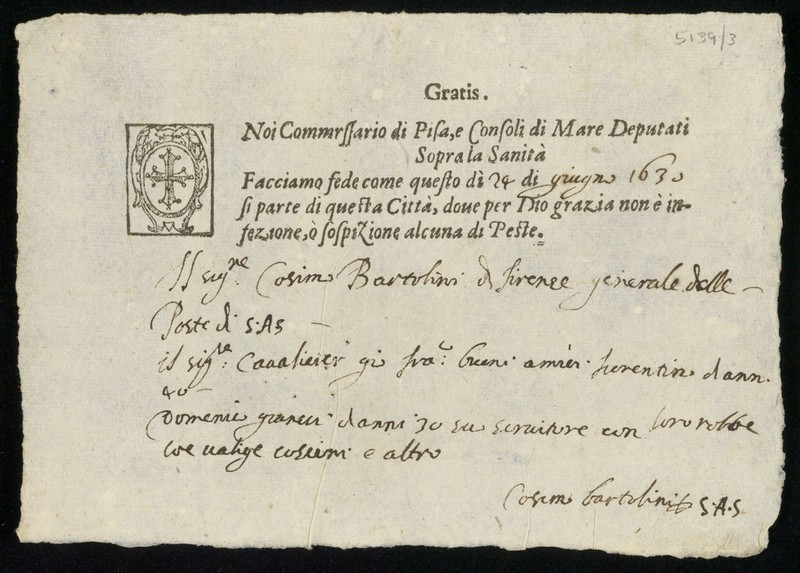 5139/3
Gratis.
Noi Commrſſario di Piſa, e Conſoli di Mare Deputati
Sopra la Sanità
Facciamo fede come queſto dì 24 di giugno 1630
ſi parte di queſta Città, doue per Dio grazia non è in-
fezione, ò ſoſpizione alcuna di Peſte.
Il sig.re Cosimo Bartolini di firenze generale delle
Poste di S.A.S
il sig.re Cavalieri gio fra.co buoni amici fiorentino d ann.
40
Domenico d anni 30 su seruitore con loro robbe
cioe ualige cuscini e altro
Cosimo bartolini S.A.S